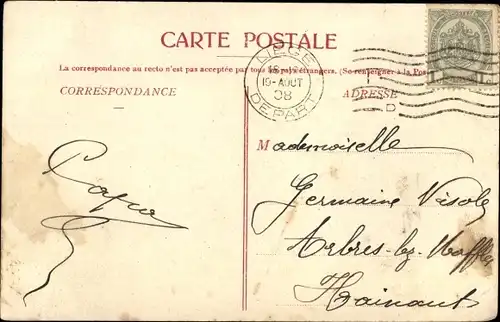 CARTE POSTALE
La correspondance au recto n'est pas acceptée par tous les pays étrangers. (Se renseigner à la Pos
CORRESPONDANCE
ADRESSE
LIÈGE
19-AOUT
08
DEPART
D
Mademoiselle
Germaine
Arbres-lez-
Hainaut